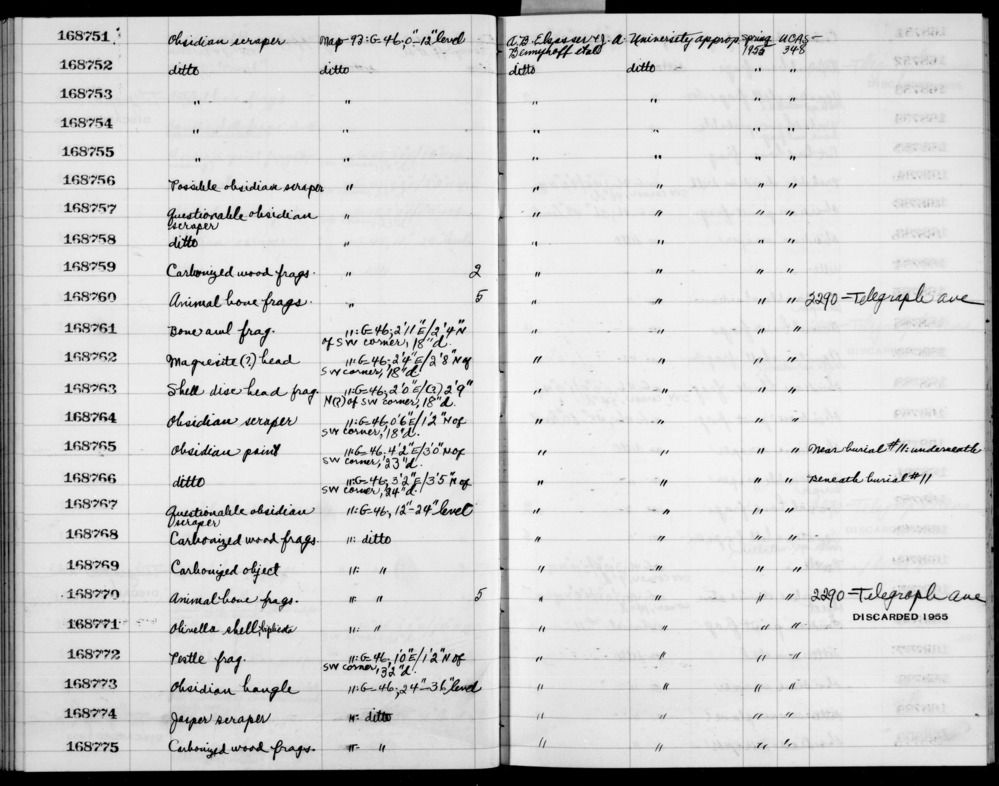 168751 Obsidian scraper Map-93:G-46, 0"-12" level A.B. Elsasser & J. A. University approp. Spring UCAS-
Bennyhoff et al 1955 348
168752 ditto ditto ditto ditto " "
168753 " " " " " "
168754 " " " " " "
168755 " " " " " "
168756 Possible obsidian scraper " " " " "
168757 Questionable obsidian " " " " "
scraper
168758 ditto " " " " "
168759 Carbonized wood frags. " 2 " " " "
168760 Animal bone frags. " 5 " " " " 2290-Telegraph ave
168761 Bone awl frag. ":G-46, 2'11"E/2'4"N " " " "
of SW corner, 18"d.
168762 Magnesite(?) bead ":G-46, 2'4"E/2'8"N of " " " "
SW corner, 18"d
168763 Shell disc bead frag. ":G-46, 2'0"E/(?) 2'9" " " " "
N(?) of SW corner, 18"d.
168764 Obsidian scraper ":G-46, 0'6"E/1'2"N of " " " "
SW corner, 18"d.
168765 Obsidian point ":G-46, 4'2"E/3'0"N of " " " " Near burial #11: underneath
SW corner, 23"d.
168766 ditto ":G-46, 3'2"E/3'5"N of " " " " Beneath burial #11
SW corner, 24"d.
168767 Questionable obsidian ":G-46, 12"-24" level " " " "
scraper
168768 Carbonized wood frags. ": ditto " " " "
168769 Carbonized object ": " " " " "
168770 Animal bone frags. ": " 5 " " " " 2290-Telegraph ave
DISCARDED 1955
168771 Olivella shell; ": " " " " "
168772 Pestle frag. ":G-46, 1'0"E/1'2"N of " " " "
SW corner, 32"d.
168773 Obsidian bangle ":G-46, 24"-36" level " " " "
168774 Jasper scraper ": ditto " " " "
168775 Carbonized wood frags. ": " " " " "